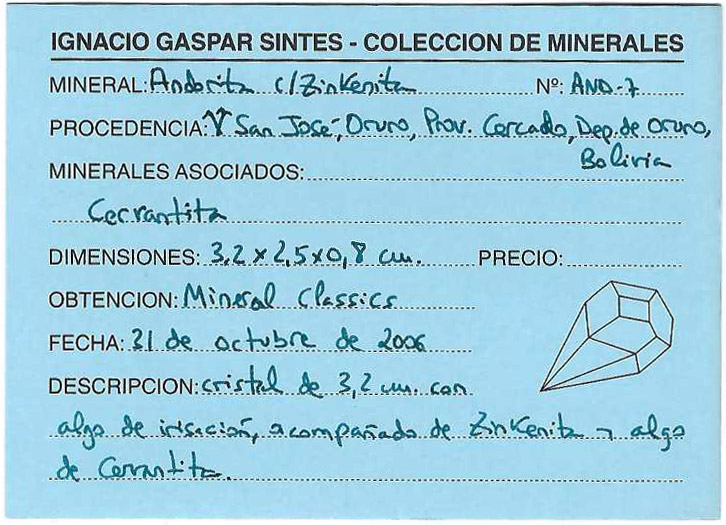 IGNACIO GASPAR SINTES - COLECCION DE MINERALES
MINERAL: Andorita c/Zinkenita Nº: AND-7
PROCEDENCIA: San José, Oruro, Prov. Cercado, Dep. de Oruro,
Bolivia
MINERALES ASOCIADOS:
Cervantita
DIMENSIONES: 3,2 x 2,5 x 0,8 cm. PRECIO:
OBTENCION: Mineral Classics
FECHA: 31 de octubre de 2006
DESCRIPCION: cristal de 3,2 cm. con
algo de irisación, acompañado de Zinkenita y algo
de Cervantita.